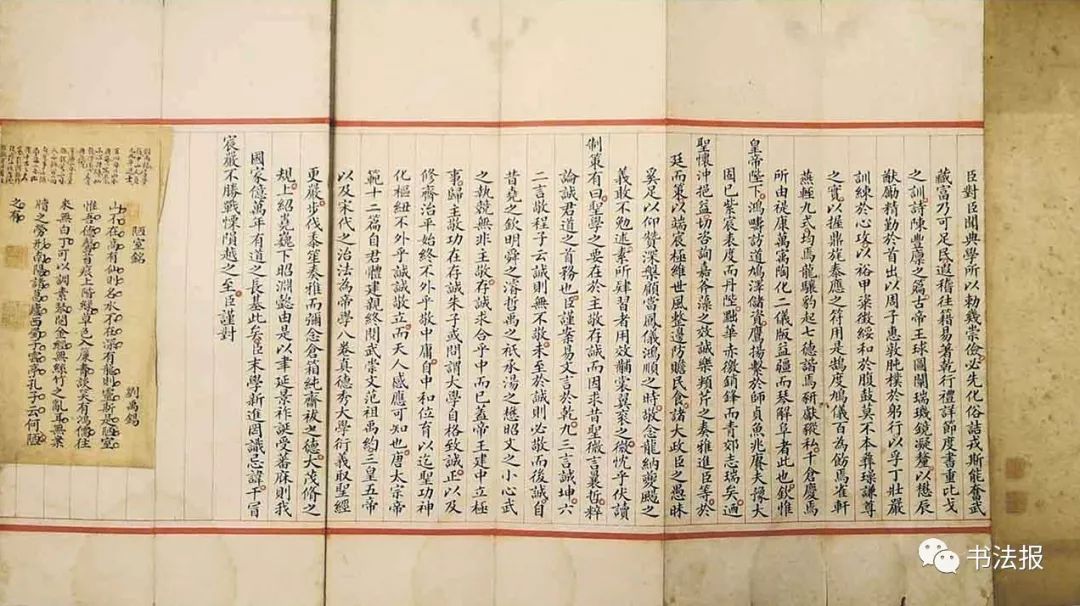 臣對臣聞典學所以勅幾崇儉必先化俗詰戎斯能奮武
藏富乃可足民遐稽往籍易者乾行禮詳節度書重比戈
之訓詩陳豐廩之篇古帝王球圖闡瑞璣鏡凝釐以懋辰
猷勵精勤於首出以周子惠敦肫樸於躬行以孚丁壯嚴
訓練於心攻以裕甲粱徵綏和於腹鼓莫不本彝璪謙尊
之實以握鼎旄泰應之符用是鵠度鳩儀百為飭焉雀軒
燕軽九式均焉龍驤豹起七德諧焉研獻豵私千倉慶焉
所由禔康萬寓陶化二儀版益疆而琴解阜者此也欽惟
皇帝陛下鴻疇訪道鳩澤儲資鷹揚繫於師貞魚兆賡夫豫大
固已紫宸表度而丹陛點華亦徵銷鋒而青郊志瑞矣迺
聖懷沖挹益切咨詢嘉芻藻之效誠樂頖芹之奏雅進臣等於
廷而策以端宸極維世風整邊防贍民食諸大政臣之愚昧
奚足以仰贊深槃顧當鳳儀鴻順之時敬念龍納夔颺之
義敢不勉述素所肄習者用效黼棠翼衮之微忱乎伏讀
制策有曰聖學之要在於主敬存誠而因求昔聖微言曩哲粹
論誠君道之首務也臣謹案易文言於乾九三言誠坤六
二言敬程子云誠則無不敬未至於誠則必敬而後誠自
昔堯之欽明舜之濬哲禹之祇承湯之懋昭文之小心武
之執競無非主敬存誠求合乎中而已蓋帝王建中立極
事歸主敬功在存誠朱子或問謂大學自格致誠正以及
修齊治平始終不外乎敬中庸自中和位育以迄聖功神
化樞紐不外乎誠誠敬立而天人感應可知也唐太宗帝
範十二篇自君體建親終閱武崇文范祖禹約三皇五帝
以及宋代之治法為帝學八卷真德秀大學衍義取聖經
更嚴步伐奏笙奏雅而彌念倉箱純齋祓之德大茂脩之
規上紹巍巍下昭淵懿由是以聿延景祚誕受蕃庥則我
國家億萬年有道之長基此矣臣末學新進罔識忌諱干冒
宸嚴不勝戰慄隕越之至臣謹對
陋室銘 劉禹錫
山不在高有仙則名水不在深有龍則靈斯是陋室
惟吾德馨苔痕上階綠草色入廉青談笑有鴻儒往
來無白丁可以調素琴閱金經無絲竹之亂耳無案
牘之勞形南陽諸葛廬西蜀子雲亭孔子云何陋
之有
书法报